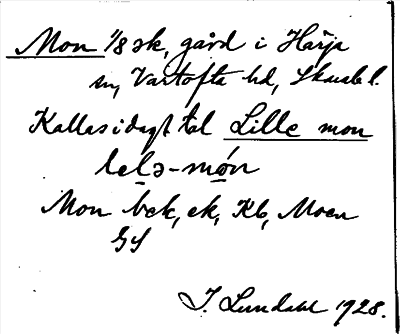 Mon 1/8 sk, gård i Härja
sn, Vartofta hd, Skarab l.
Kallas i dagl tal Lille mon
lelə-món
Mon bck, ek, Kb, Moen
GS
I. Lundahl 1928.